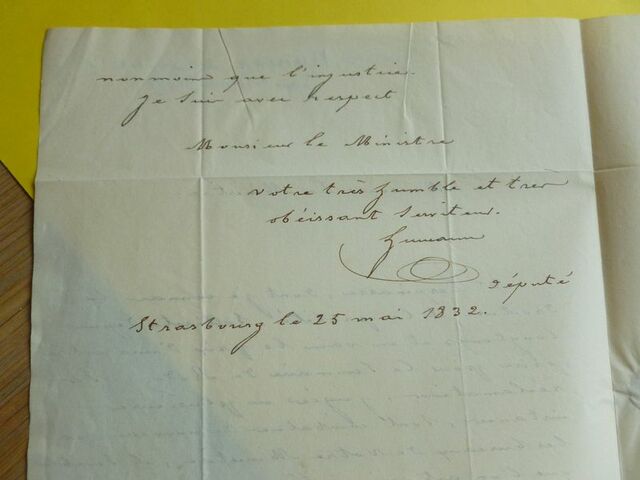 non moin que l'injustice.
Je Suis avec respect
Monsieur le Ministre
votre très humble et très
obéissant Serviteur.
Humann
Député
Strasbourg le 25 mai 1832.